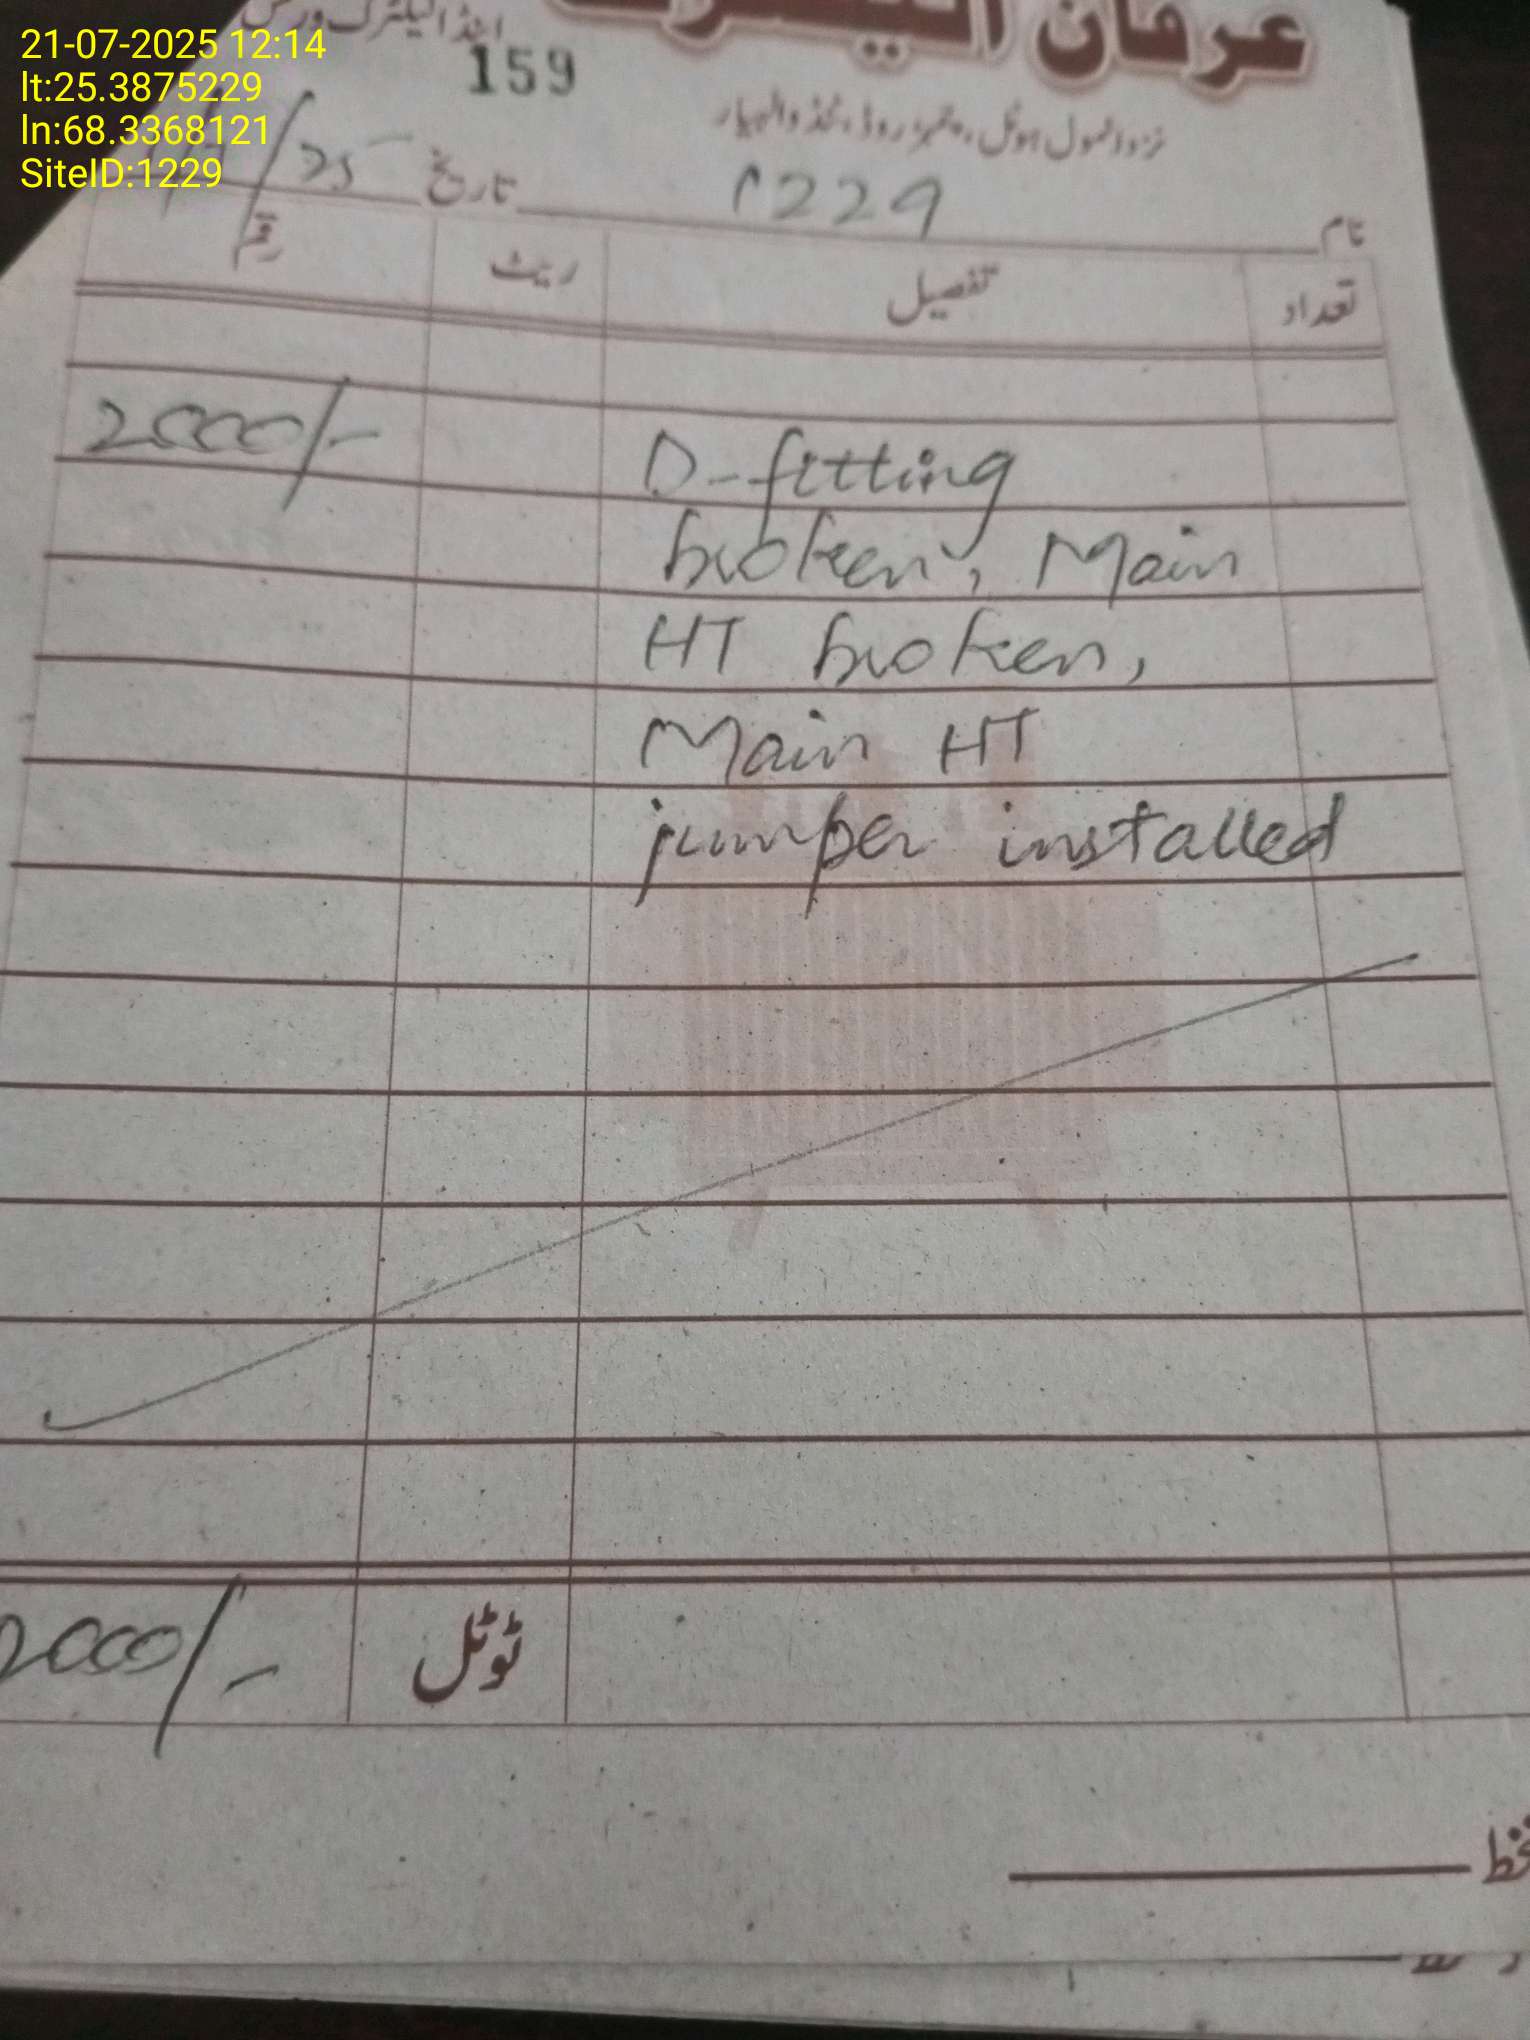 21-07-2025 12:14
lt:25.3875229
ln:68.3368121
SiteID:1229
عرفان الیکٹرک
اینڈ الیکٹرک ورکس
159
روڈ، ٹنڈوالہیار
نام 1229 تاریخ /25
تعداد تفصیل ریٹ رقم
D-fitting 2000/-
broken, Main
HT broken,
Main HT
jumper installed
ٹوٹل 2000/-